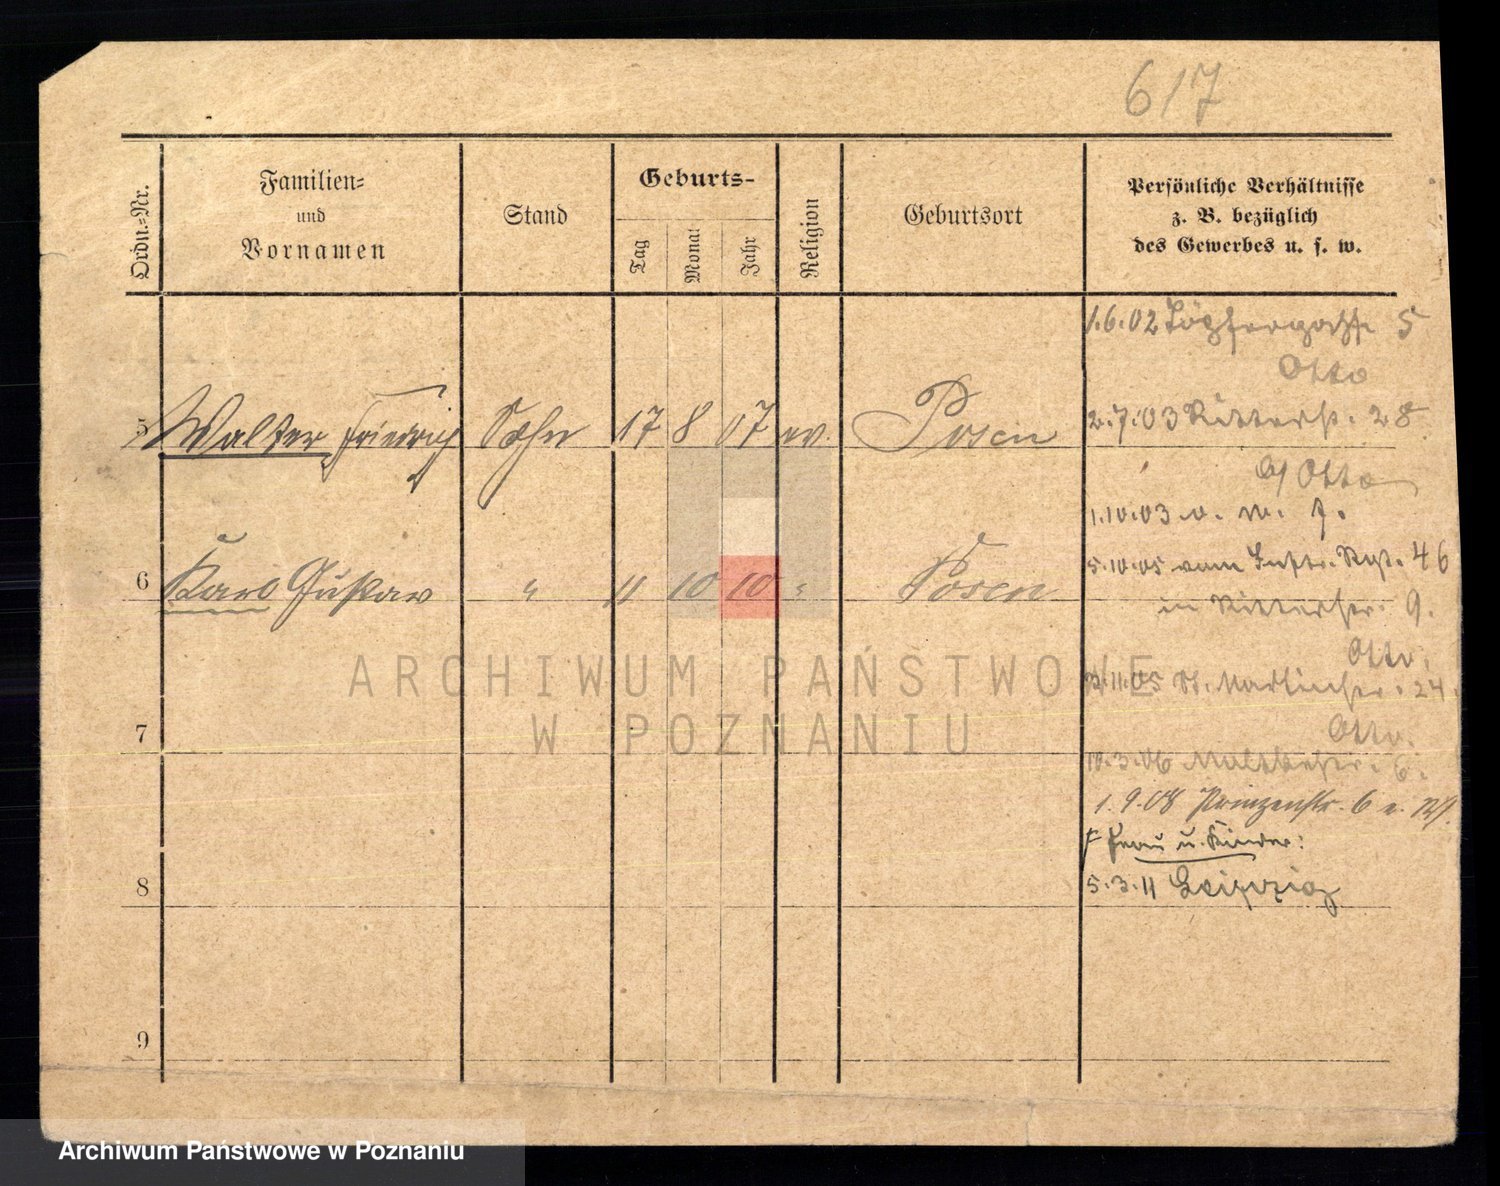 617
Ordn.-Nr.
Familien-
und
Vornamen
Stand
Geburts-
Tag
Monat
Jahr
Religion
Geburtsort
Persönliche Verhältnisse
z. B. bezüglich
des Gewerbes u. s. w.
1.6.02 Töpfergasse 5
Otto
5 Walter Friedrich Sohn 17 8 07 ev. Posen
2.7.03 Ritterstr. 28
b/ Otto
1.10.03 v. m. 7.
6 Karl Gustav " 11 10 10 " Posen
5.10.05 vom Inftr. Rgt. 46
in Ritterstr. 9.
Otto.
11.05 St. Martinstr. 24.
7
Otto.
10.3.06 6.
1.9.08 Prinzenstr. 6
Frau u. Kinder:
8
5.3.11 Leipzig
9
ARCHIWUM PAŃSTWOWE
W POZNANIU
Archiwum Państwowe w Poznaniu